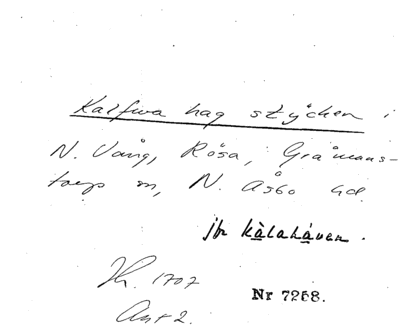 Kalfwa hag stycken i
N. Vång, Rösa, Gråmans-
torps sn, N. Åsbo hd.
jfr kàlahàven.
Jb. 1707
Ant 2.
Nr 7258.